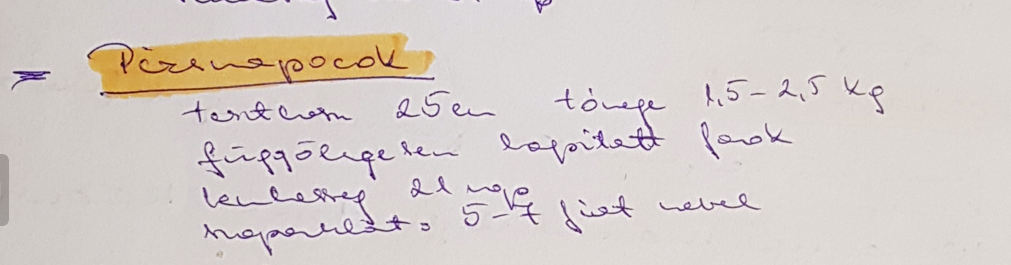 - Pézsmapocok
testhossz 25 cm tömege 1,5-2,5 kg
függőlegesen lapított farok
vemhesség 21 nap
szaporulat: 5-7 fiat nevel